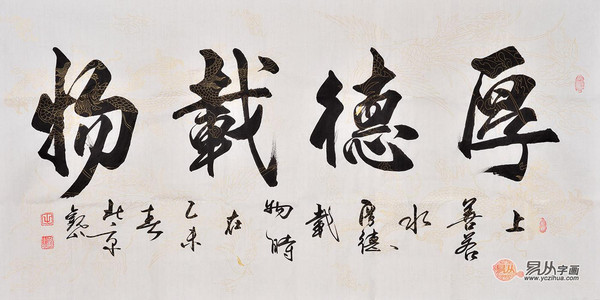 厚德載物
上
善若
水
厚德、
載
物時
在
乙未
春
北京
易从
易从字画
www.yczihua.com